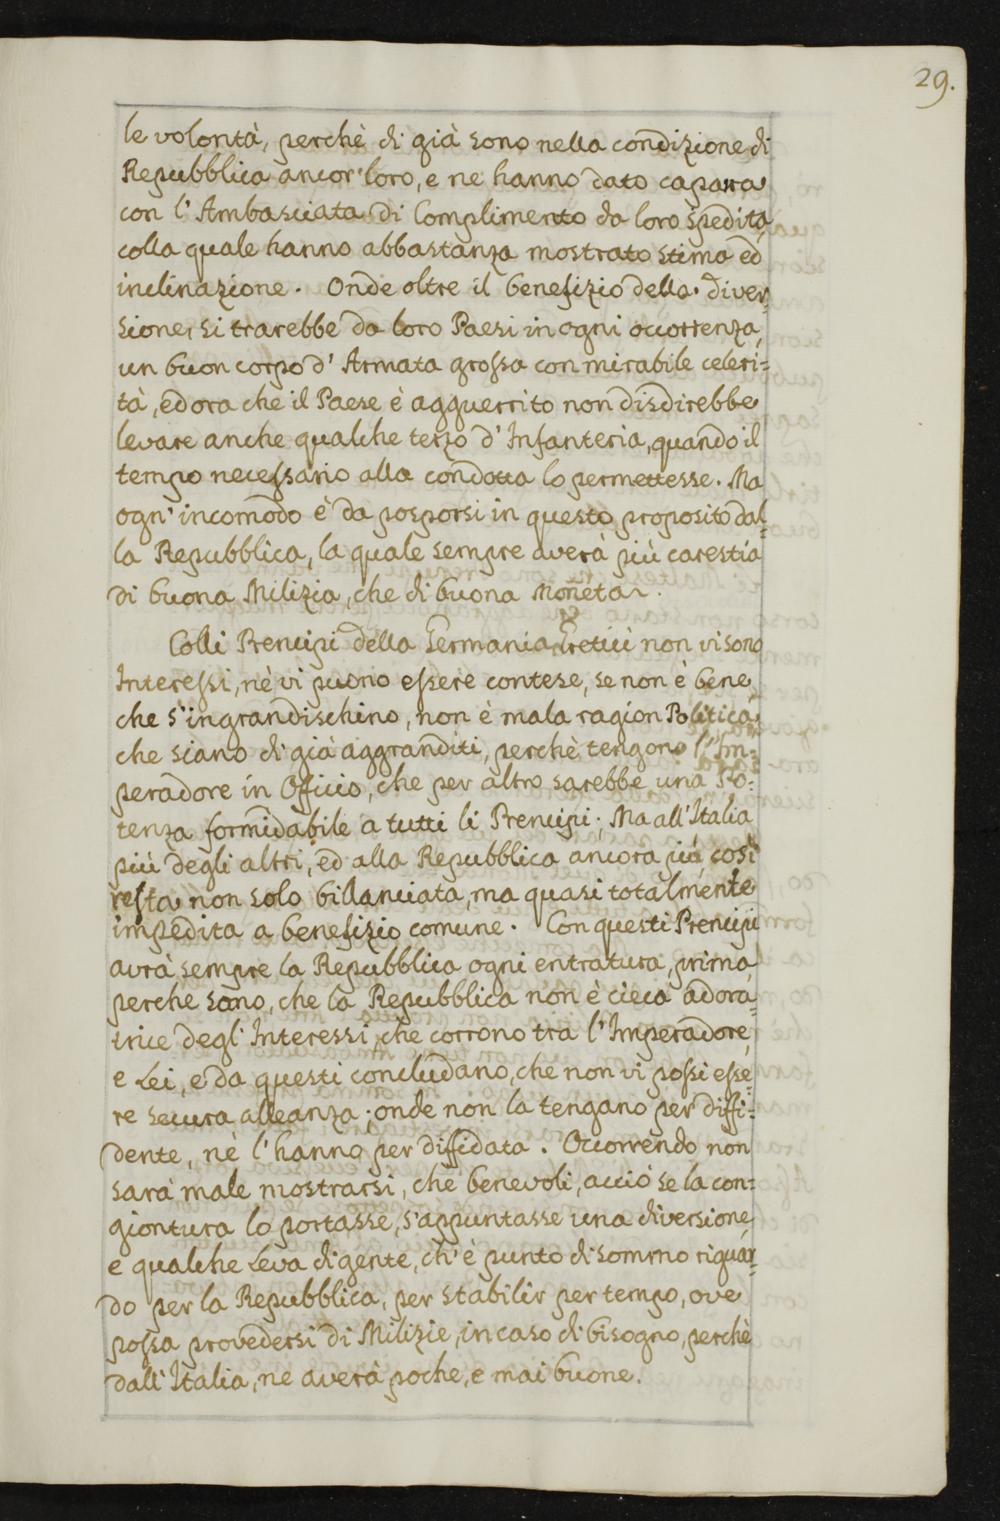 29.
le volontà, perchè di già sono nella condizione di
Repubblica ancor' loro, e ne hanno dato caparra
con l' Ambasciata di Complimento da loro spedita,
colla quale hanno abbastanza mostrato stima ed
inclinazione. Onde oltre il benefizio della diver=
sione, si trarebbe da loro Paesi in ogni occorrenza
un buon corpo d' Armata grossa con mirabile celeri=
tà, ed ora che il Paese è agguerrito non disdirebbe
levare anche qualche terzo d' Infanteria, quando il
tempo necessario alla condotta lo permettesse. Ma
ogn' incomodo è da posporsi in questo proposito dal=
la Repubblica, la quale sempre averà più carestia
di buona Milizia, che di buona Moneta.
Colli Prencipi della Germania Eretici non vi sono
Interessi, nè vi puono essere contese, se non è bene
che s'ingrandischino, non è mala ragion Politica,
che siano di già aggranditi, perchè tengono l' Im=
peradore in Officio, che per altro sarebbe una Po=
tenza formidabile a tutti li Prencipi; Ma all' Italia
più degli altri, ed alla Repubblica ancora più, così
resta non solo billanciata, ma quasi totalmente
impedita a benefizio comune. Con questi Prencipi
avrà sempre la Repubblica ogni entratura, prima
perchè sano, che la Repubblica non è cieca adora=
trice degl' Interessi, che corrono tra l' Imperadore,
e Lei, e da questi concludano, che non vi possi esse=
re secura alleanza; onde non la tengano per diffi=
dente, nè l' hanno per diffidata. Occorrendo non
sarà male mostrarsi, che benevoli, acciò se la con=
giontura lo portasse, s'appuntasse una diversione,
e qualche Leva di gente, ch' è punto di sommo riguar=
do per la Repubblica, per stabilir per tempo, ove
possa provedersi di Milizie, in caso di bisogno, perchè
dall' Italia, ne averà poche, e mai buone.